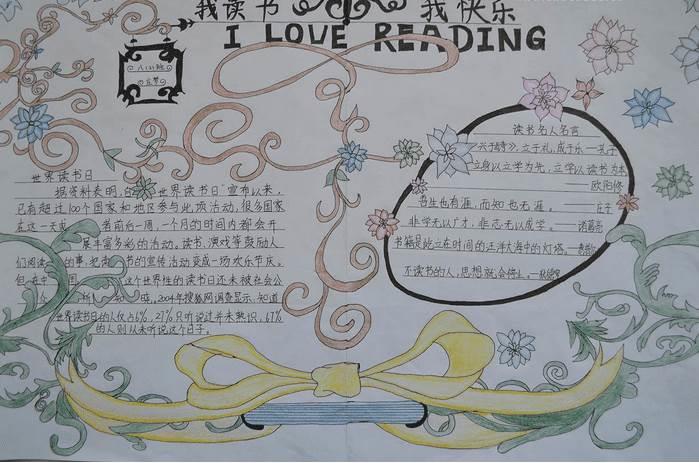 我读书 我快乐
I LOVE READING
八(3)班
世界读书日
据资料表明,自"世界读书日"宣布以来,
已有超过100个国家和地区参与此项活动,很多国家
在这一天或者前后一周、一个月的时间内都会开
展丰富多彩的活动。读书、演戏等鼓励人
们阅读的事,把读书的宣传活动变成一场欢乐节庆。
但在中国,这个世界性的读书日还未被社会公
2004年搜狐网调查显示,知道
世界读书日的人仅占6%,27%只听说过并未熟识,67%
的人则从未听说这个日子。
读书名人名言
兴于诗,立于礼,成于乐——孔子
立身以立学为先,立学以读书为本
——欧阳修
吾生也有涯,而知也无涯。——庄子
非学无以广才,非志无以成学。——诸葛亮
书籍是屹立在时间的汪洋大海中的灯塔。
不读书的人,思想就会停止。